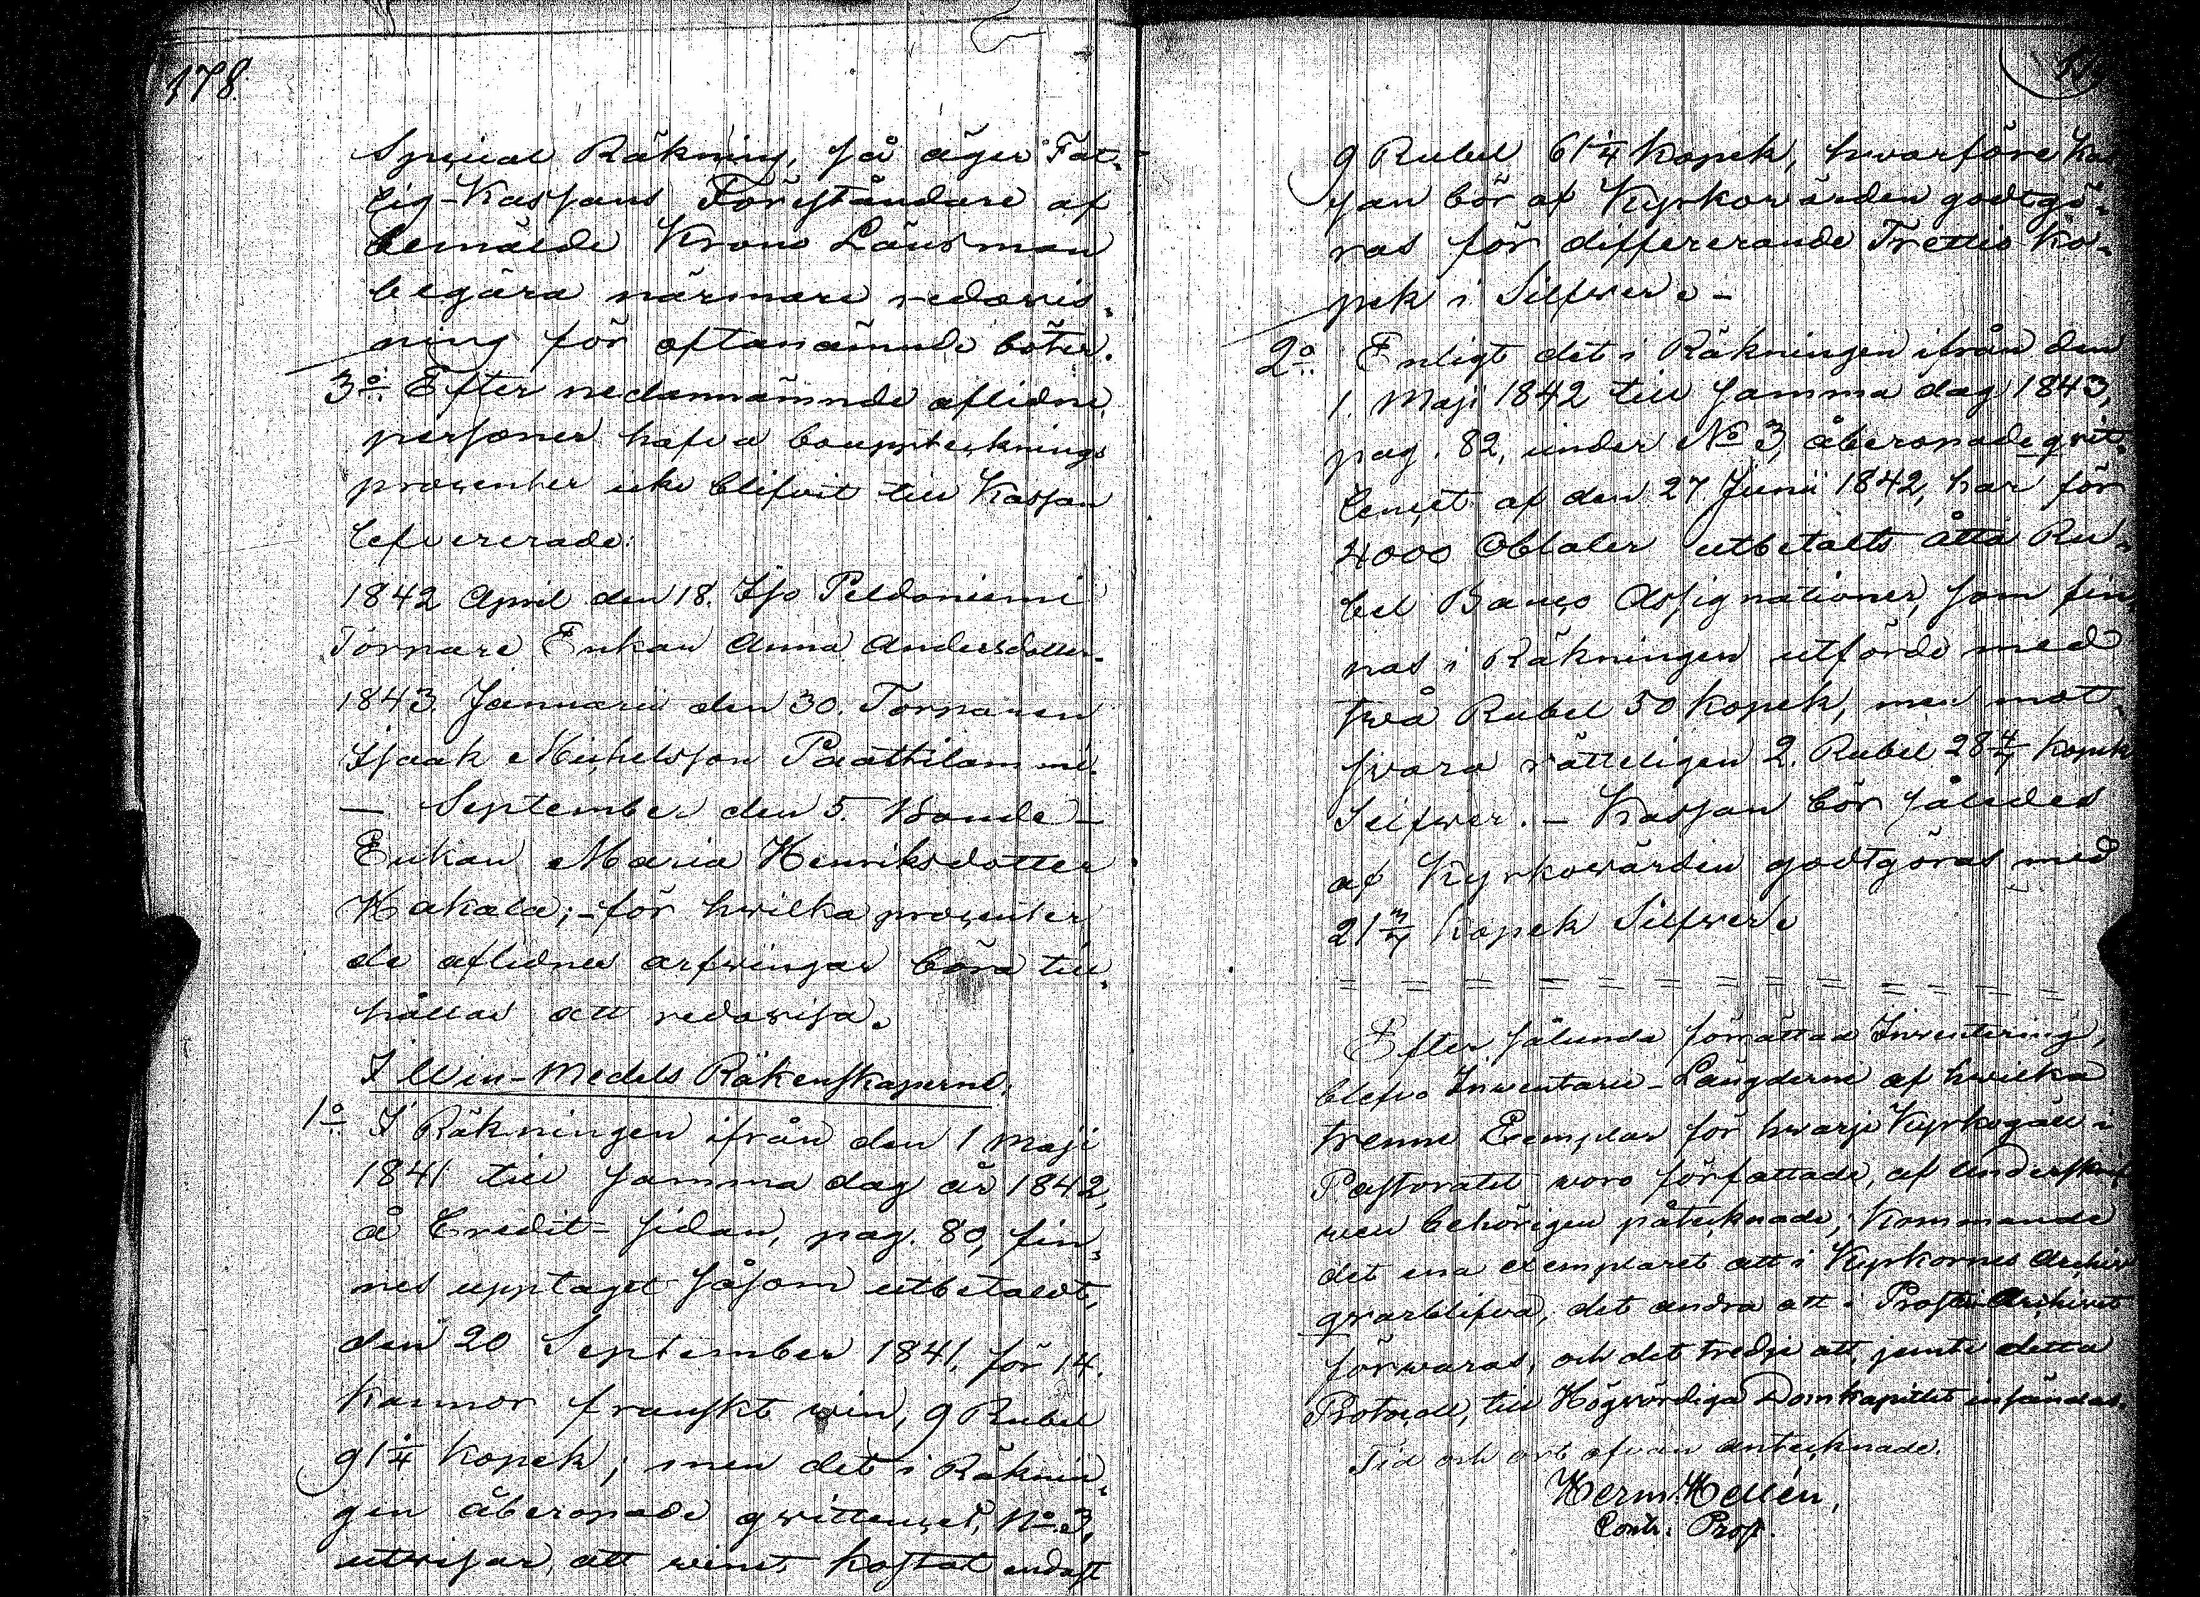 178.
Special Räkning, så äger Fat-
tig-Kassans Föreståndare af
bemälde Krono Länsman
begära närmare redovis-
ning för oftanämnde böter.
3:o Efter nedannämnde aflidne
personer hafva bouppteknings
procenter icke blifvit till Kassan
lefvererade:
1842 April den 18. Iso Peldoniemi
Torpare Enkan Anna Andersdotter.
1843. Januarii den 30. Torparen
Isaak Michelsson Paattilammi.
— September den 5. Bonde-
Enkan Maria Henriksdotter
Hakala; - för hvilka procenter
de aflidnes arfvingar böra till-
hållas att redovisa.
I Win-Medels Räkenskaperne.
1:o I Räkningen ifrån den 1 Maji
1841 till samma dag år 1842,
å Credit-sidan, pag. 80, fin-
nes upptaget såsom utbetaldt,
den 20 September 1841, för 14.
kannor franskt win, 9 Rubel
91 1/4 kopek; men det i Räknin-
gen åberopade qvittencet, No 3,
utvisar, att vinet kostat endast
9 Rubel 61 1/4 Kopek, hvarföre Kas
san bör af Kyrkovärden godtgö-
ras för differerande Trettio Ko-
pek i Silfver. -
2:o Enligt det i Räkningen ifrån den
1. Maji 1842 till samma dag 1843,
pag. 82, under No 3, åberopade qvit-
tencet af den 27 Junii 1842, har för
4000 Oblater utbetalts åtta Ru-
bel Banco Assignationer, som fin-
nas i Räkningen utförde med
två Rubel 50 kopek, men mot-
svara rätteligen 2. Rubel 28 4/7 kopek
Silfver. - Kassan bör således
af Kyrkovärden godtgöras med
21 3/7 kopek Silfver.
= = = = = = = = = = = =
Efter sålunda förrättad Inventering,
blefvo Inventarie-Längderne af hvilka
trenne Exemplar för hvarje Kyrkogäll i
Pastoratet voro författade, af Underskrif
ven behörigen påtecknade; Kommande
det ena exemplaret att i Kyrkornes Archiv
qvarblifva, det andra att i Prosti-Archivet
förvaras, och det tredje att, jemte detta
Protocoll, till Högvördiga Domkapitlet insändas.
Tid och ort ofvan antecknade.
Herm. Hellén,
Contr. Prost.